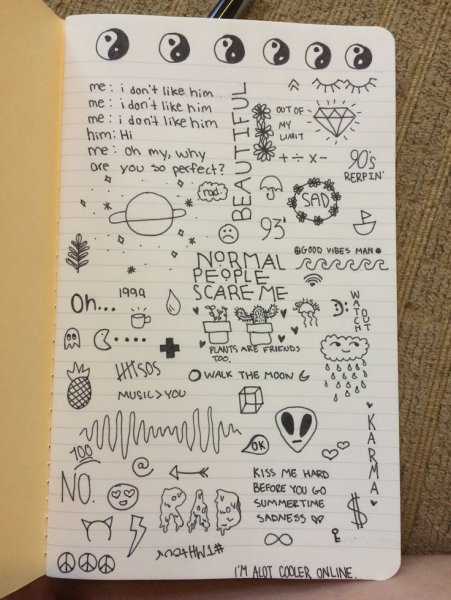 me: i don't like him
me: i don't like him
me: i don't like him
him: Hi
me: oh my, why
are you so perfect?
BEAUTIFUL
OUT OF
MY
LIMIT
+ ÷ × -
90's
RERPIN'
rad
SAD
93'
GOOD VIBES MAN
NORMAL
PEOPLE
SCARE ME
Oh...
1999
WATCH
OUT
PLANTS ARE FRIENDS
TOO.
5SOS
WALK THE MOON
MUSIC>YOU
OK
100
@
NO.
KISS ME HARD
BEFORE YOU GO
SUMMERTIME
SADNESS
KARMA
$
I'M ALOT COOLER ONLINE.